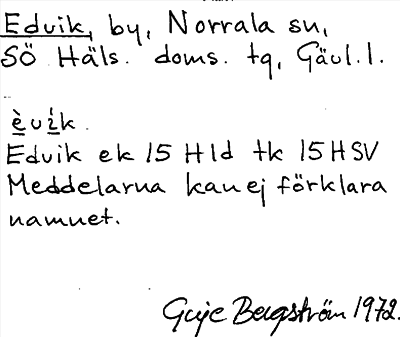 Edvik, by, Norrala sn,
Sö Häls. doms. tg, Gävl. l.
èvík.
Edvik ek 15 HId tk 15 HSV
Meddelarna kan ej förklara
namnet.
Bergström 1972.